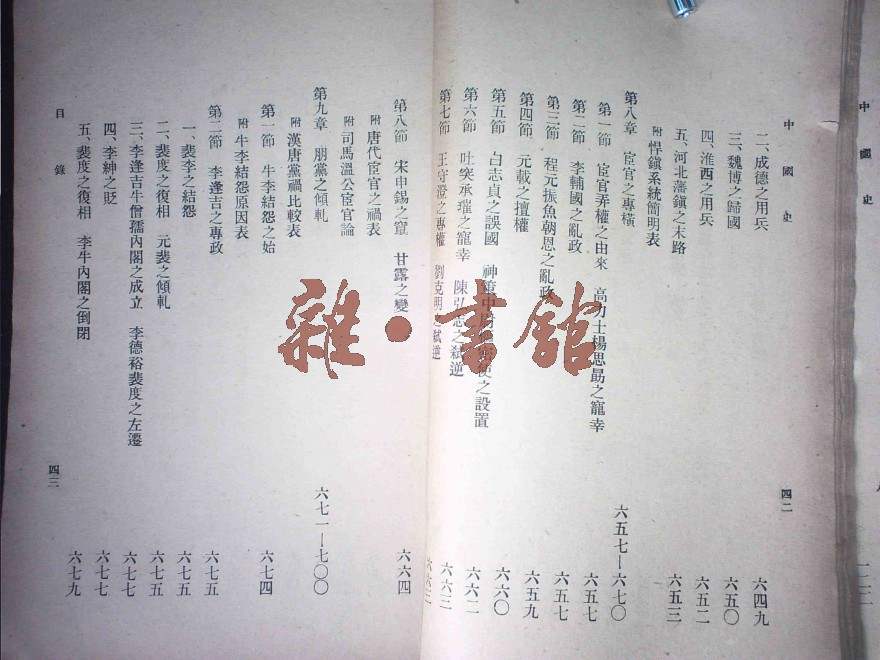 中國史
四二
二、成德之用兵 六四九
三、魏博之歸國 六五〇
四、淮西之用兵 六五二
五、河北藩鎮之末路 六五三
附 悍鎮系統簡明表
第八章 宦官之專橫 六五七—六七〇
第一節 宦官弄權之由來 高力士楊思勗之寵幸 六五七
第二節 李輔國之亂政 六五七
第三節 程元振魚朝恩之亂政 六五九
第四節 元載之擅權 六六〇
第五節 白志貞之誤國 神策中尉 使之設置 六六二
第六節 吐突承璀之寵幸 陳弘志之弒逆 六六二
第七節 王守澄之專權 劉克明之弒逆 六六三
第八節 宋申錫之竄 甘露之變 六六四
附 唐代宦官之禍表
附 司馬溫公宦官論
第九章 朋黨之傾軋 六七一—七〇〇
附 漢唐黨禍比較表
第一節 牛李結怨之始 六七四
附 牛李結怨原因表
第二節 李逢吉之專政 六七五
一、裴李之結怨 六七五
二、裴度之復相 元裴之傾軋 六七五
三、李逢吉牛僧孺內閣之成立 李德裕裴度之左遷 六七七
四、李紳之貶 六七七
五、裴度之復相 李牛內閣之倒閉 六七九
目錄
四三
中國史
雜·書館